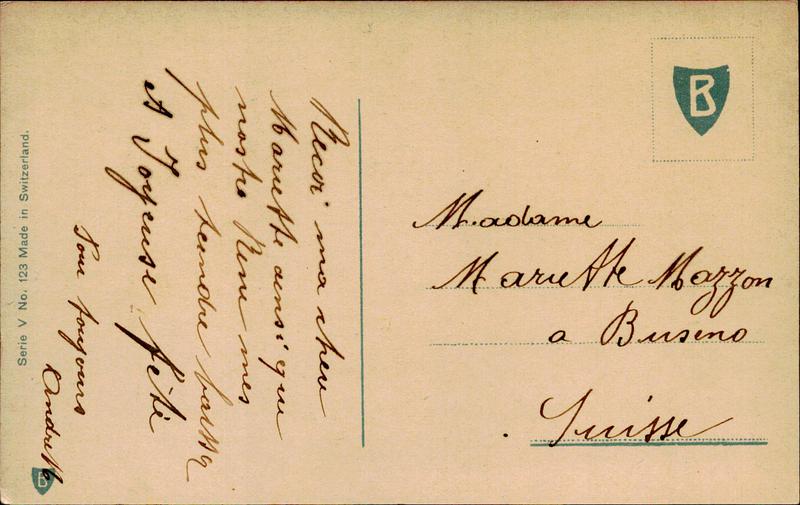 Recoi ma cheu
Mariette ainsi que
nostre Rene mes
plus tendre baisse
A Joyeuse fété
Pour toujours
Andre
Serie V No. 123 Made in Switzerland.
B
B
Madame
Mariette Mazzon
a Buseno
Suisse